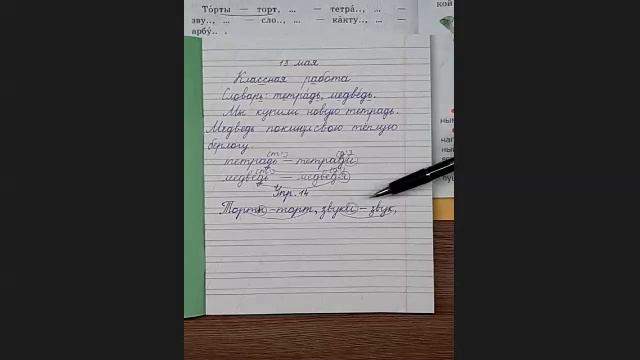 Торты — торт, ... — тетра.., ... —
зву.., ... — сло.., ... — ка́кту.., ... —
арбу́.. .
кой
13 мая
Классная работа
Словарь: тетрадь, медведь.
Мы купили новую тетрадь.
Медведь покинул свою тёплую
берлогу.
тетрадь — тетради
медведь — медведя
Упр. 14
Торты — торт, звуки — звук,